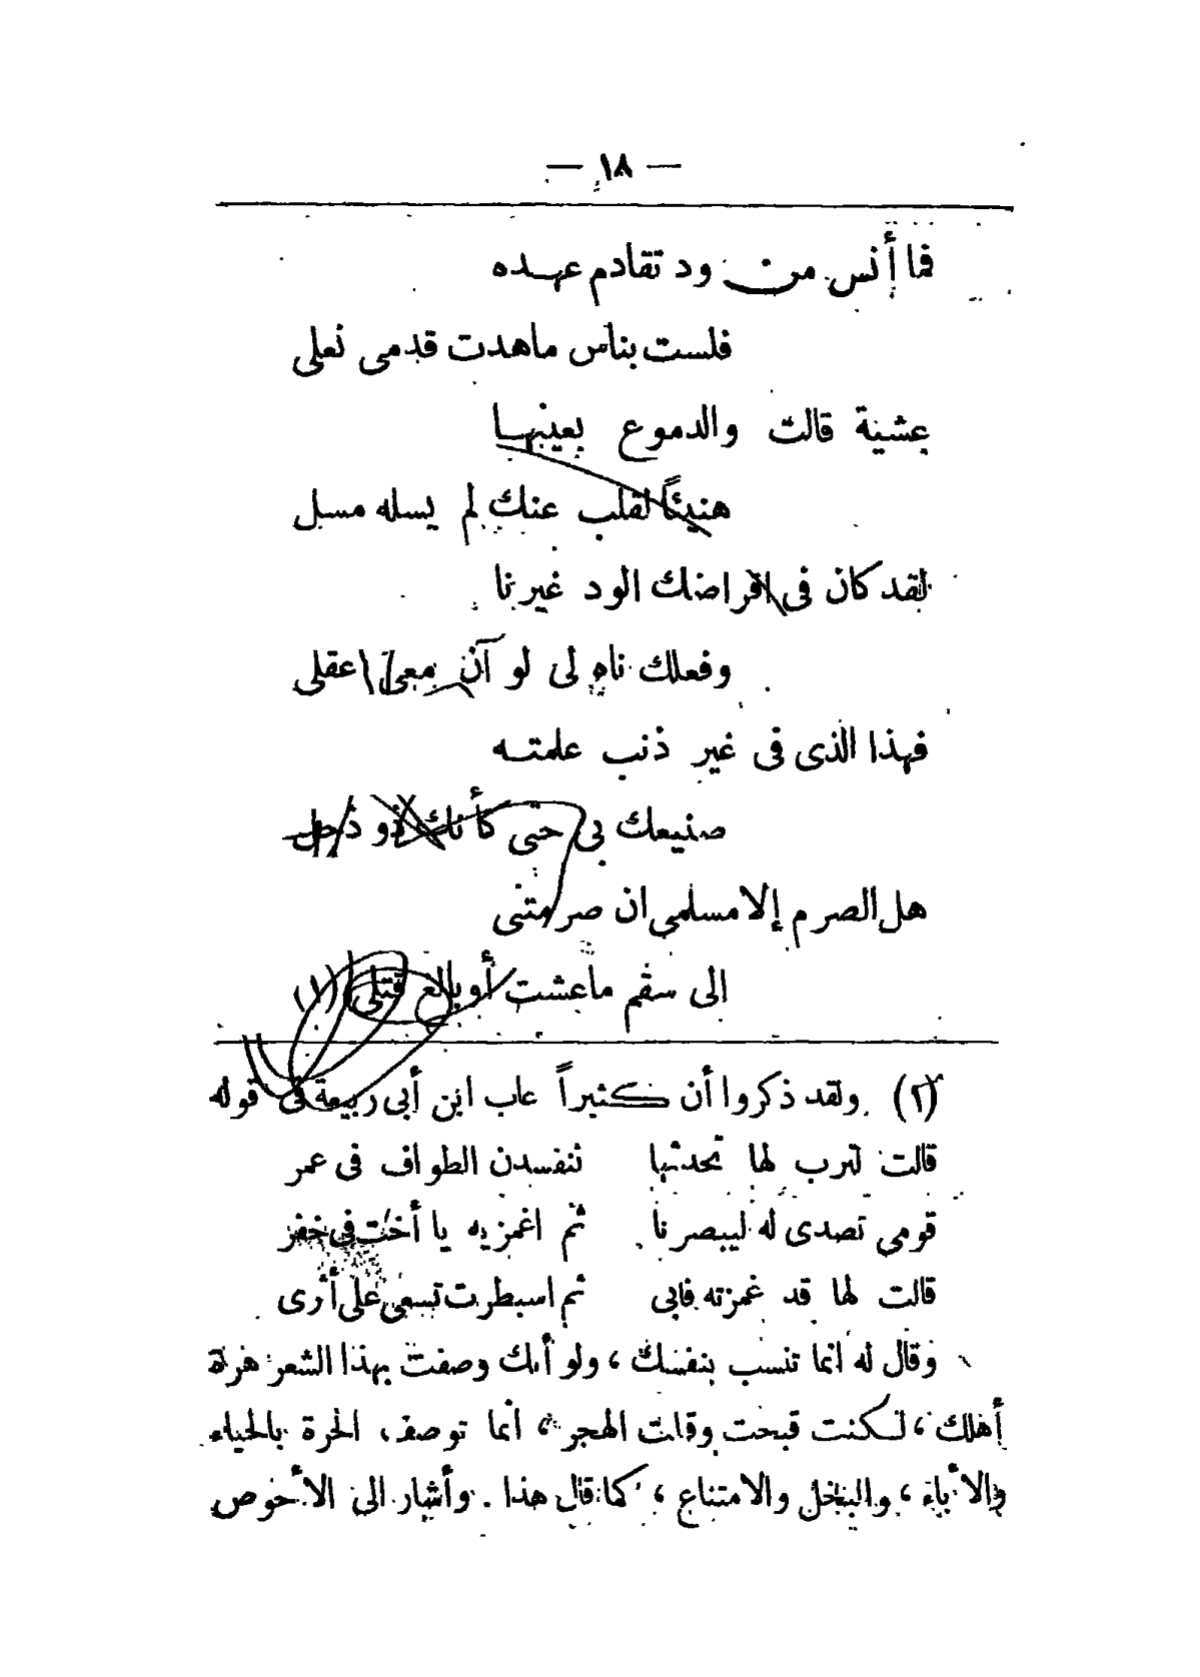 — ١٨ —
فما أنس من ود تقادم عهده
فلست بناس ماهدت قدمى نعلى
عشية قالت والدموع بعينها
هنيئاً لقلب عنك لم يسله مسل
لقد كان فى اقراضك الود غيرنا
وفعلك ناه لى لو آن معى عقلى
فهذا الذى فى غير ذنب علمته
صنيعك بى حتى كأنك ذو ذحل
هل الصرم إلا مسلمى ان صرمتنى
الى سقم ماعشت أو بالغ قتلى (١)
(٢) ولقد ذكروا أن كثيراً عاب ابن أبى ربيعة فى قوله
قالت لترب لها تحدثها لنفسدن الطواف فى عمر
قومى تصدى له ليبصرنا ثم اغمزيه يا أخت فى خفر
قالت لها قد غمزته فابى ثم اسبطرت تسعى على أثرى
وقال له انما تنسب بنفسك ، ولو أنك وصفت بهذا الشعر هرة
أهلك ، لكنت قبحت وقلت الهجر ، انما توصف الحرة بالحياء
والأباء ، والبخل والامتناع ، كما قال هذا . وأشار الى الأحوص